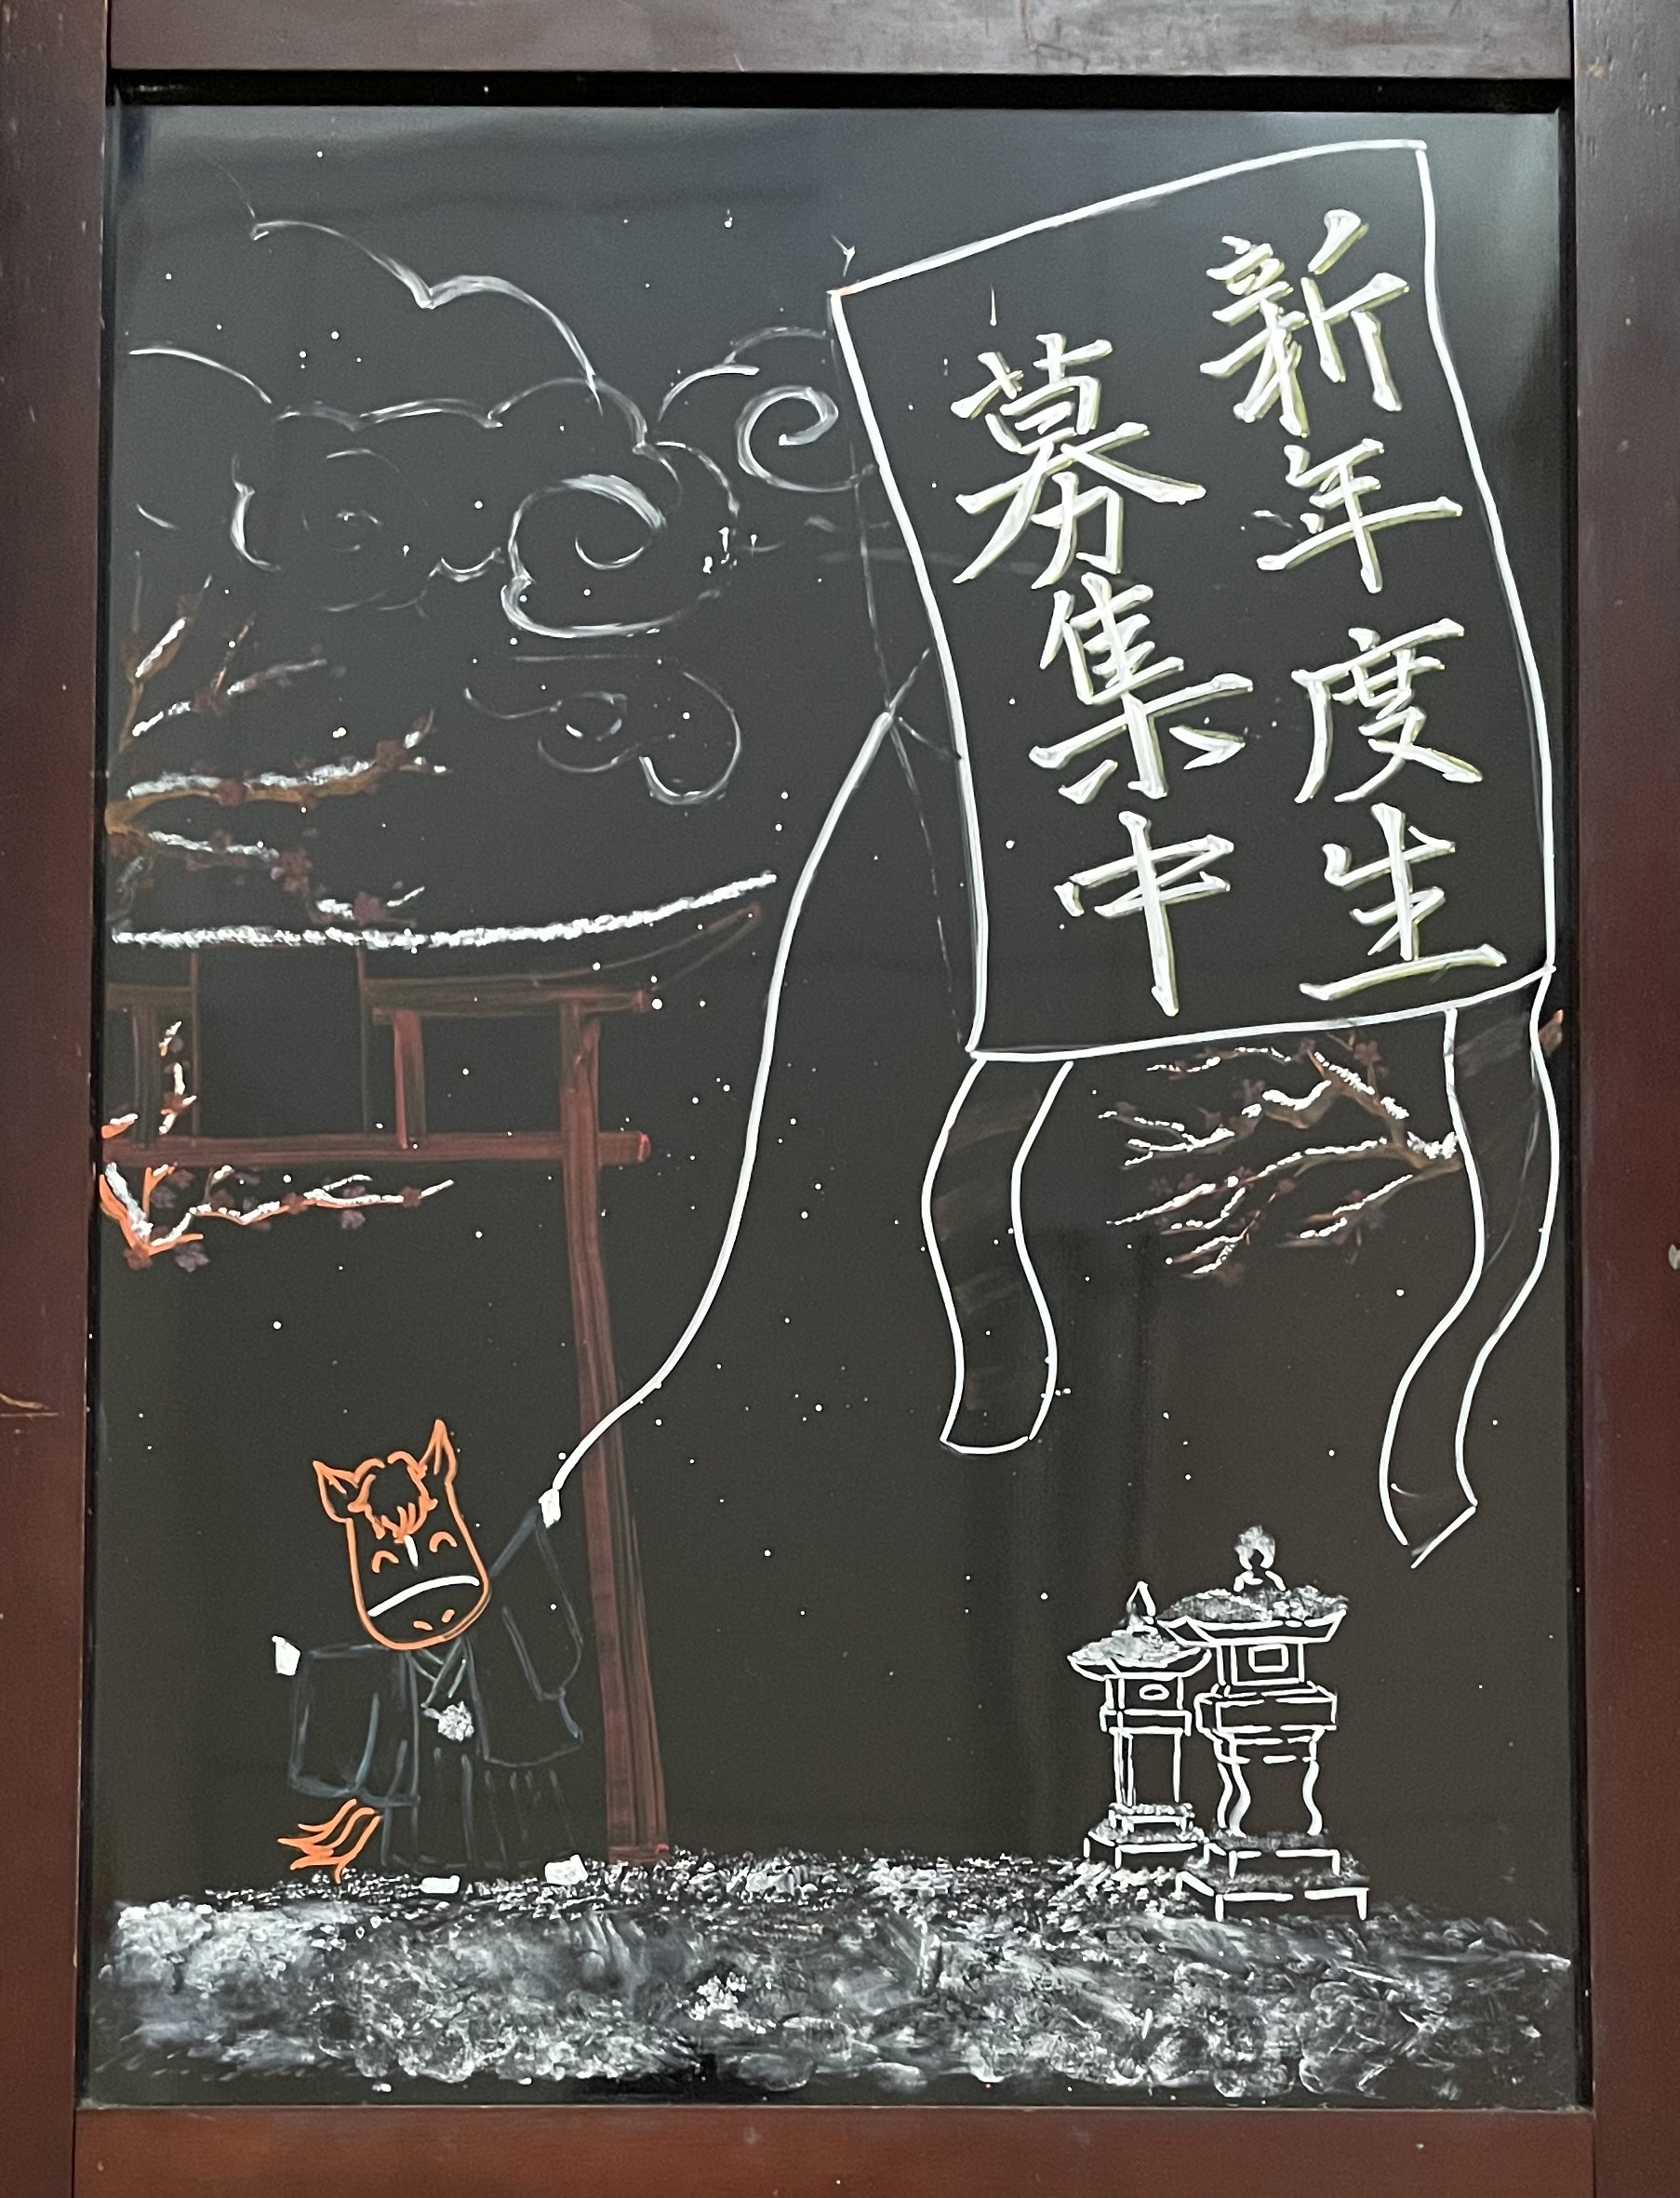 新年度生
募集中